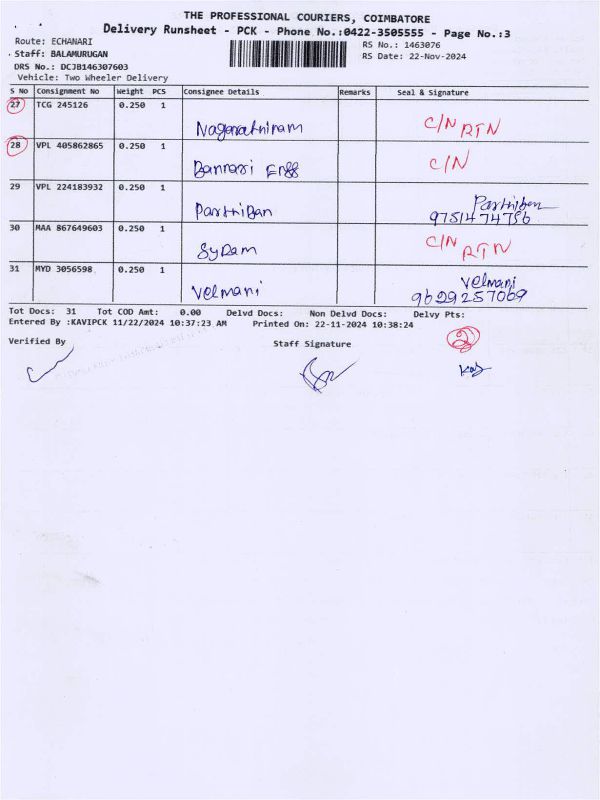 THE PROFESSIONAL COURIERS, COIMBATORE
Delivery Runsheet - PCK - Phone No.:0422-3505555 - Page No.:3
Route: ECHANARI
RS No.: 1463076
Staff: BALAMURUGAN
RS Date: 22-Nov-2024
DRS No.: DCJB146307603
Vehicle: Two Wheeler Delivery
S No Consignment No Weight PCS Consignee Details Remarks Seal & Signature
27 TCG 245126 0.250 1
Nagarathinam C/N RTN
28 VPL 405862865 0.250 1
Bannari Engg C/N
29 VPL 224183932 0.250 1
Parthiban Parthiban
9751474756
30 MAA 867649603 0.250 1
C/N RTN
31 MYD 3056598 0.250 1
Velmani Velmani
9629257069
Tot Docs: 31 Tot COD Amt: 0.00 Delvd Docs: Non Delvd Docs: Delvy Pts:
Entered By :KAVIPCK 11/22/2024 10:37:23 AM Printed On: 22-11-2024 10:38:24
Verified By Staff Signature